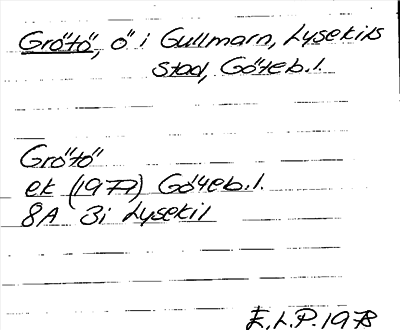 Grötö, ö i Gullmarn, Lysekils
stad, Göteb. l.
Grötö
ek (1977) Göteb. l.
8A 3i Lysekil
E.L.P. 1978